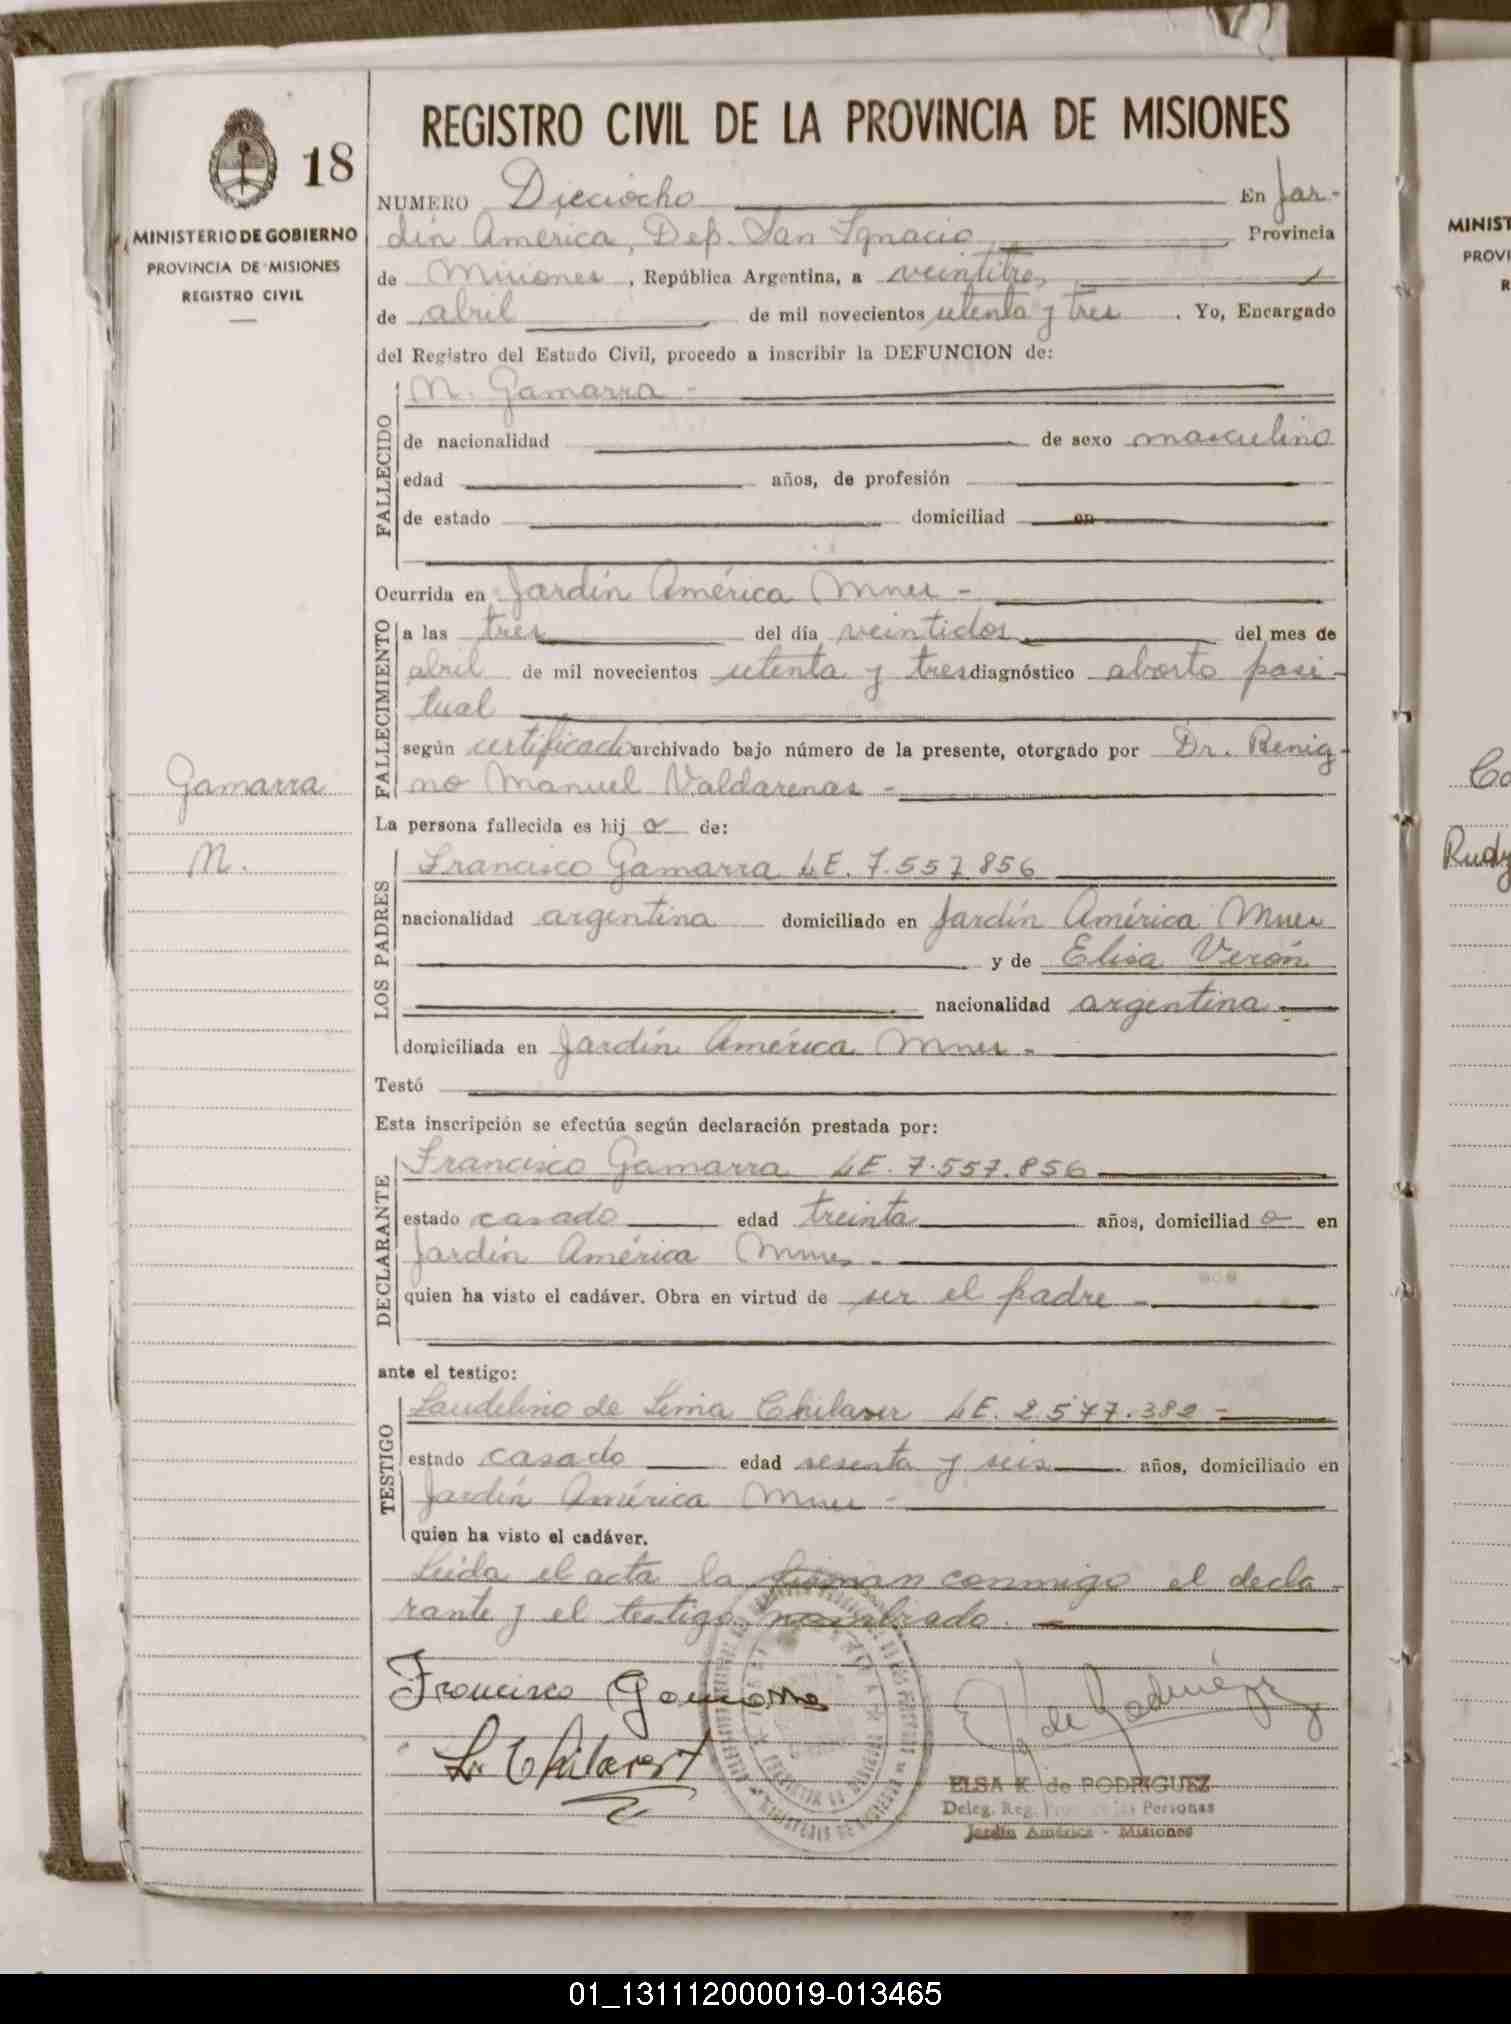 REGISTRO CIVIL DE LA PROVINCIA DE MISIONES
18
MINISTERIO DE GOBIERNO
PROVINCIA DE MISIONES
REGISTRO CIVIL
NUMERO Dieciocho En Jar-
dín América, Dep. San Ignacio Provincia
de Misiones, República Argentina, a veintitres
de abril de mil novecientos setenta y tres. Yo, Encargado
del Registro del Estado Civil, procedo a inscribir la DEFUNCION de:
FALLECIDO
N. Gamarra -
de nacionalidad de sexo masculino
edad años, de profesión
de estado domiciliad en
Ocurrida en Jardín América Mnes -
FALLECIMIENTO
a las tres del día veintidos del mes de
abril de mil novecientos setenta y tres diagnóstico aborto pasi-
tual
según certificado archivado bajo número de la presente, otorgado por Dr. Benig-
no Manuel Valdarenas -
Gamarra
N.
La persona fallecida es hij o de:
LOS PADRES
Francisco Gamarra LE. 7.557.856
nacionalidad argentina domiciliado en Jardín América Mnes
y de Elisa Verón
nacionalidad argentina
domiciliada en Jardín América Mnes -
Testó
Esta inscripción se efectúa según declaración prestada por:
DECLARANTE
Francisco Gamarra LE. 7.557.856
estado casado edad treinta años, domiciliad o en
Jardín América Mnes -
quien ha visto el cadáver. Obra en virtud de ser el padre -
ante el testigo:
TESTIGO
Laudelino de Lima Chilaver LE. 2.577.382 -
estado casado edad sesenta y seis años, domiciliado en
Jardín América Mnes -
quien ha visto el cadáver.
Leida el acta la firman conmigo el decla-
rante y el testigo nombrado.
Francisco Gamarra
L. Chilavert
E. de Rodriguez
ELSA K. de RODRIGUEZ
Deleg. Reg. Prov. de las Personas
Jardín América - Misiones
MINIST
PROVI
R
Rudy
01_131112000019-013465